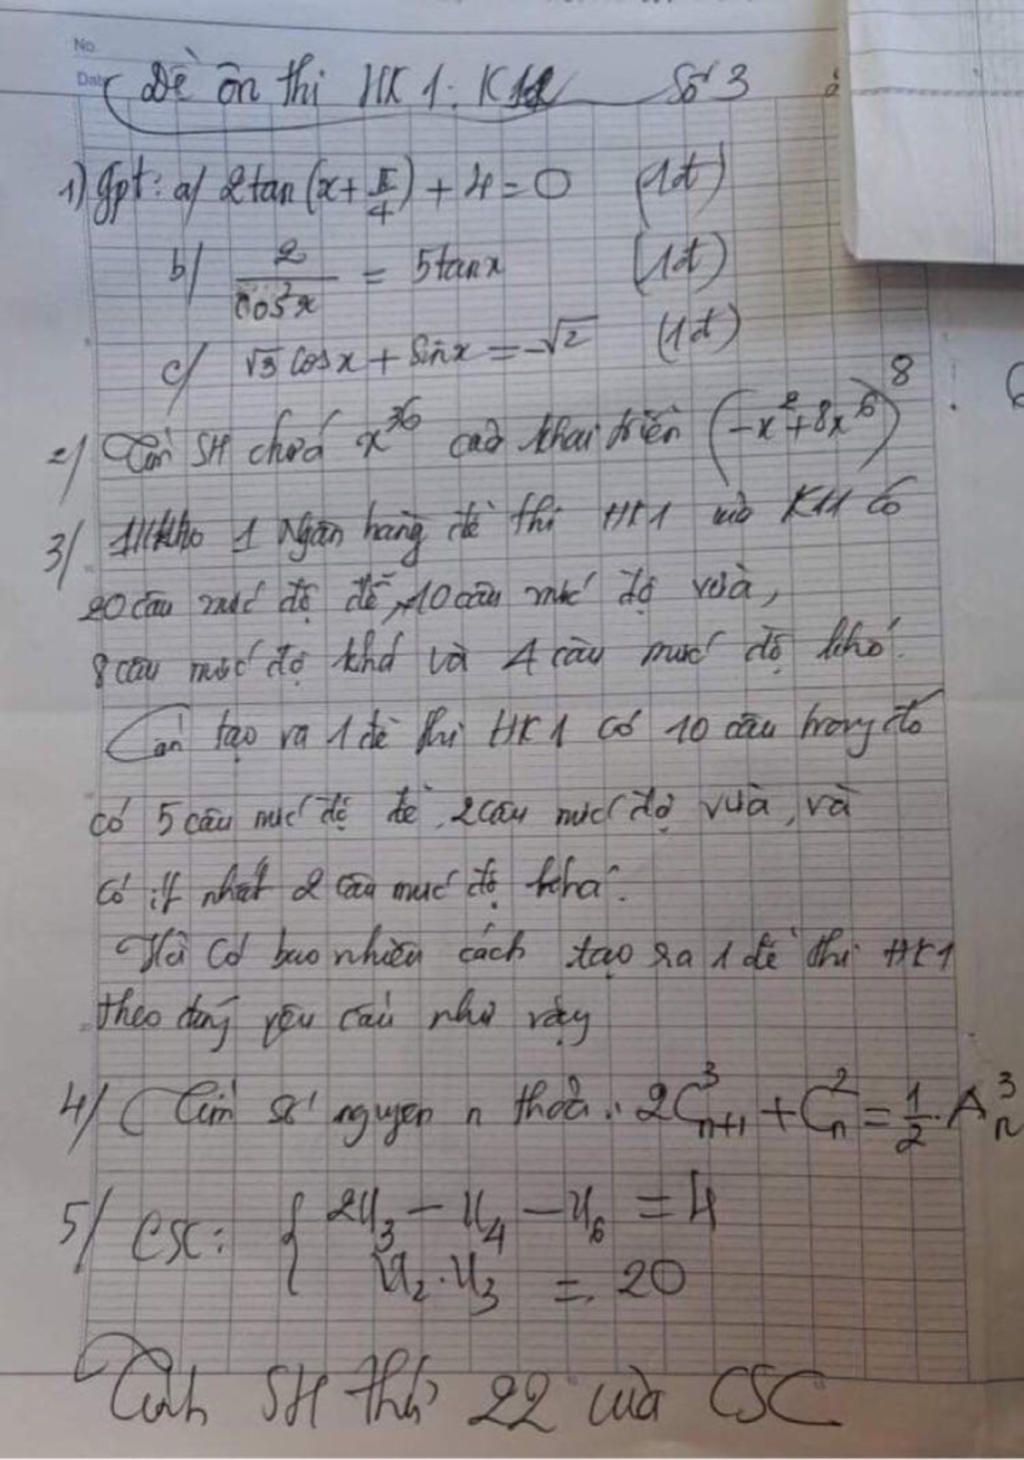 No.
Date
Đề ôn thi HK1: K11 Số 3
1) Gpt: a/ 2tan(x+π/4) + 4 = 0 (1đ)
b/ 2/cos²x = 5tanx (1đ)
c/ √3 cosx + sinx = -√2 (1đ)
2/ Tìm SH chứa x³⁶ của khai triển (-x²+8x⁶)⁸
3/ Cho 1 Ngân hàng đề thi HK1 của K11 có
20 câu mức độ dễ, 10 câu mức độ vừa,
8 câu mức độ khá và 4 câu mức độ khó.
Cần tạo ra 1 đề thi HK1 có 10 câu trong đó
có 5 câu mức độ dễ, 2 câu mức độ vừa, và
có ít nhất 2 câu mức độ khá.
Hỏi có bao nhiêu cách tạo ra 1 đề thi HK1
theo đúng yêu cầu như vậy
4/ Tìm số nguyên n thoả: 2C³ₙ₊₁ + C²ₙ = 1/2 . A³ₙ
5/ CSC: { 2u₃ - u₄ - u₆ = 4
u₂.u₃ = 20
Tính SH thứ 22 của CSC